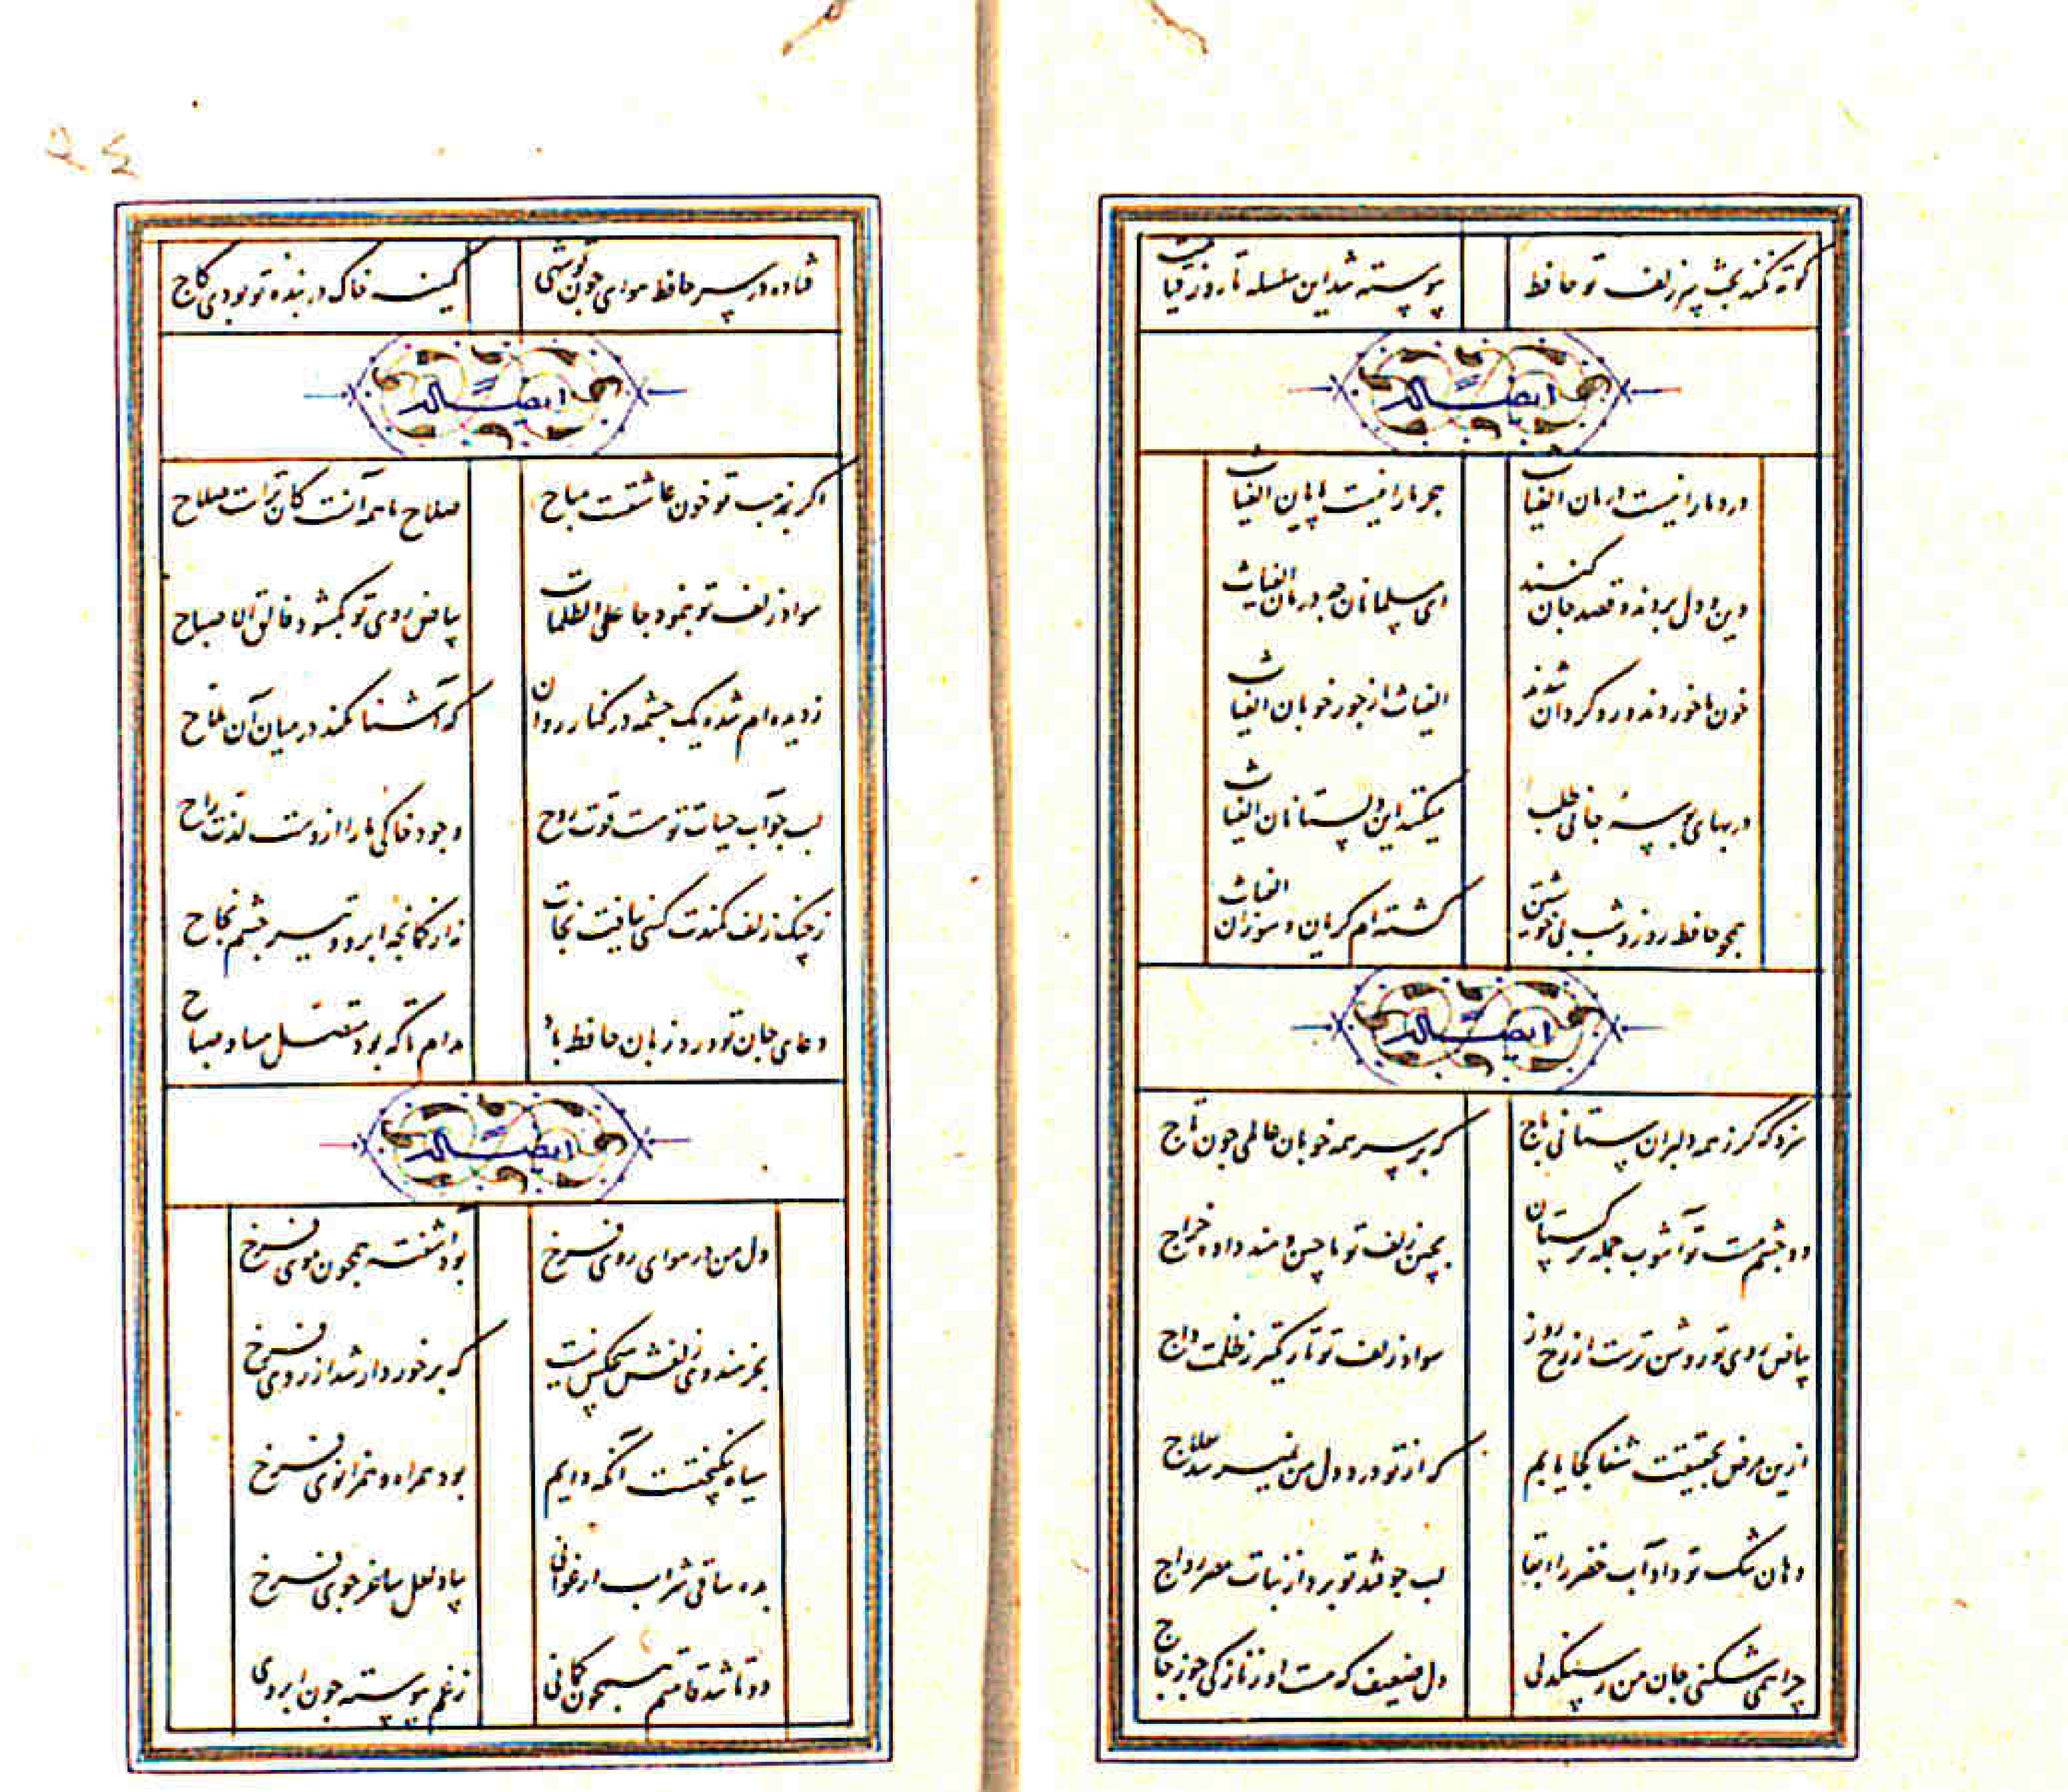 کوته نکند بحث سر زلف تو حافظ
پیوسته شد این سلسله تا روز قیامت
ایضاله
درد ما را نیست درمان الغیاث
هجر ما را نیست پایان الغیاث
دین و دل بردند و قصد جان کنند
ای مسلمانان چه درمان الغیاث
خون ما خوردند و رو گردان شدند
الغیاث از جور خوبان الغیاث
در بهای بوسهٔ جانی طلب
میکنند این دلستانان الغیاث
همچو حافظ روز و شب بی خویشتن
گشته ام گریان و سوزان الغیاث
ایضاله
سزد که گر ز همه دلبران ستانی باج
که بر سر همه خوبان عالمی چون تاج
دو چشم مست تو آشوب جمله ترکستان
بچین زلف تو ماچین و هند داده خراج
بیاض روی تو روشن ترست از رخ روز
سواد زلف تو تاریکتر ز ظلمت داج
ازین مرض بحقیقت شفا کجا یابم
که از تو درد دل من نمیرسد بعلاج
دهان تنگ تو داد آب خضر را ابقا
لب چو قند تو برد از نبات مصر رواج
چرا همی شکنی جان من ز سنگدلی
دل ضعیف که هست او ز نازکی چو زجاج
۲۴
فتاده در سر حافظ هوای چون تو شهی
کمینه خاک در بنده تو بودی کاج
ایضاله
اگر بمذهب تو خون عاشقست مباح
صلاح ما همه آنست کان تراست صلاح
سواد زلف تو بنمود جاعل الظلمات
بیاض روی تو بگشود فالق الاصباح
ز دیده ام شده یک چشمه در کنار روان
که آشنا نکند در میان آن ملاح
لب چو آب حیات تو هست قوت روح
وجود خاکی ما را ازوست لذت راح
ز چنگ زلف کمندت کسی نیافت نجات
نه از کمانچه ابرو و تیر چشم نجاح
دعای جان تو ورد زبان حافظ باد
مدام تا که بود متصل مسا و صباح
ایضاله
دل من در هوای روی فرخ
بود آشفته همچون موی فرخ
بجز هندوی زلفش هیچکس نیست
که برخوردار شد از روی فرخ
سیاه نیکبختست آنکه دایم
بود همراه و همزانوی فرخ
بده ساقی شراب ارغوانی
بیاد لعل ساغر جوی فرخ
دوتا شد قامتم همچون کمانی
ز غم پیوسته چون ابروی